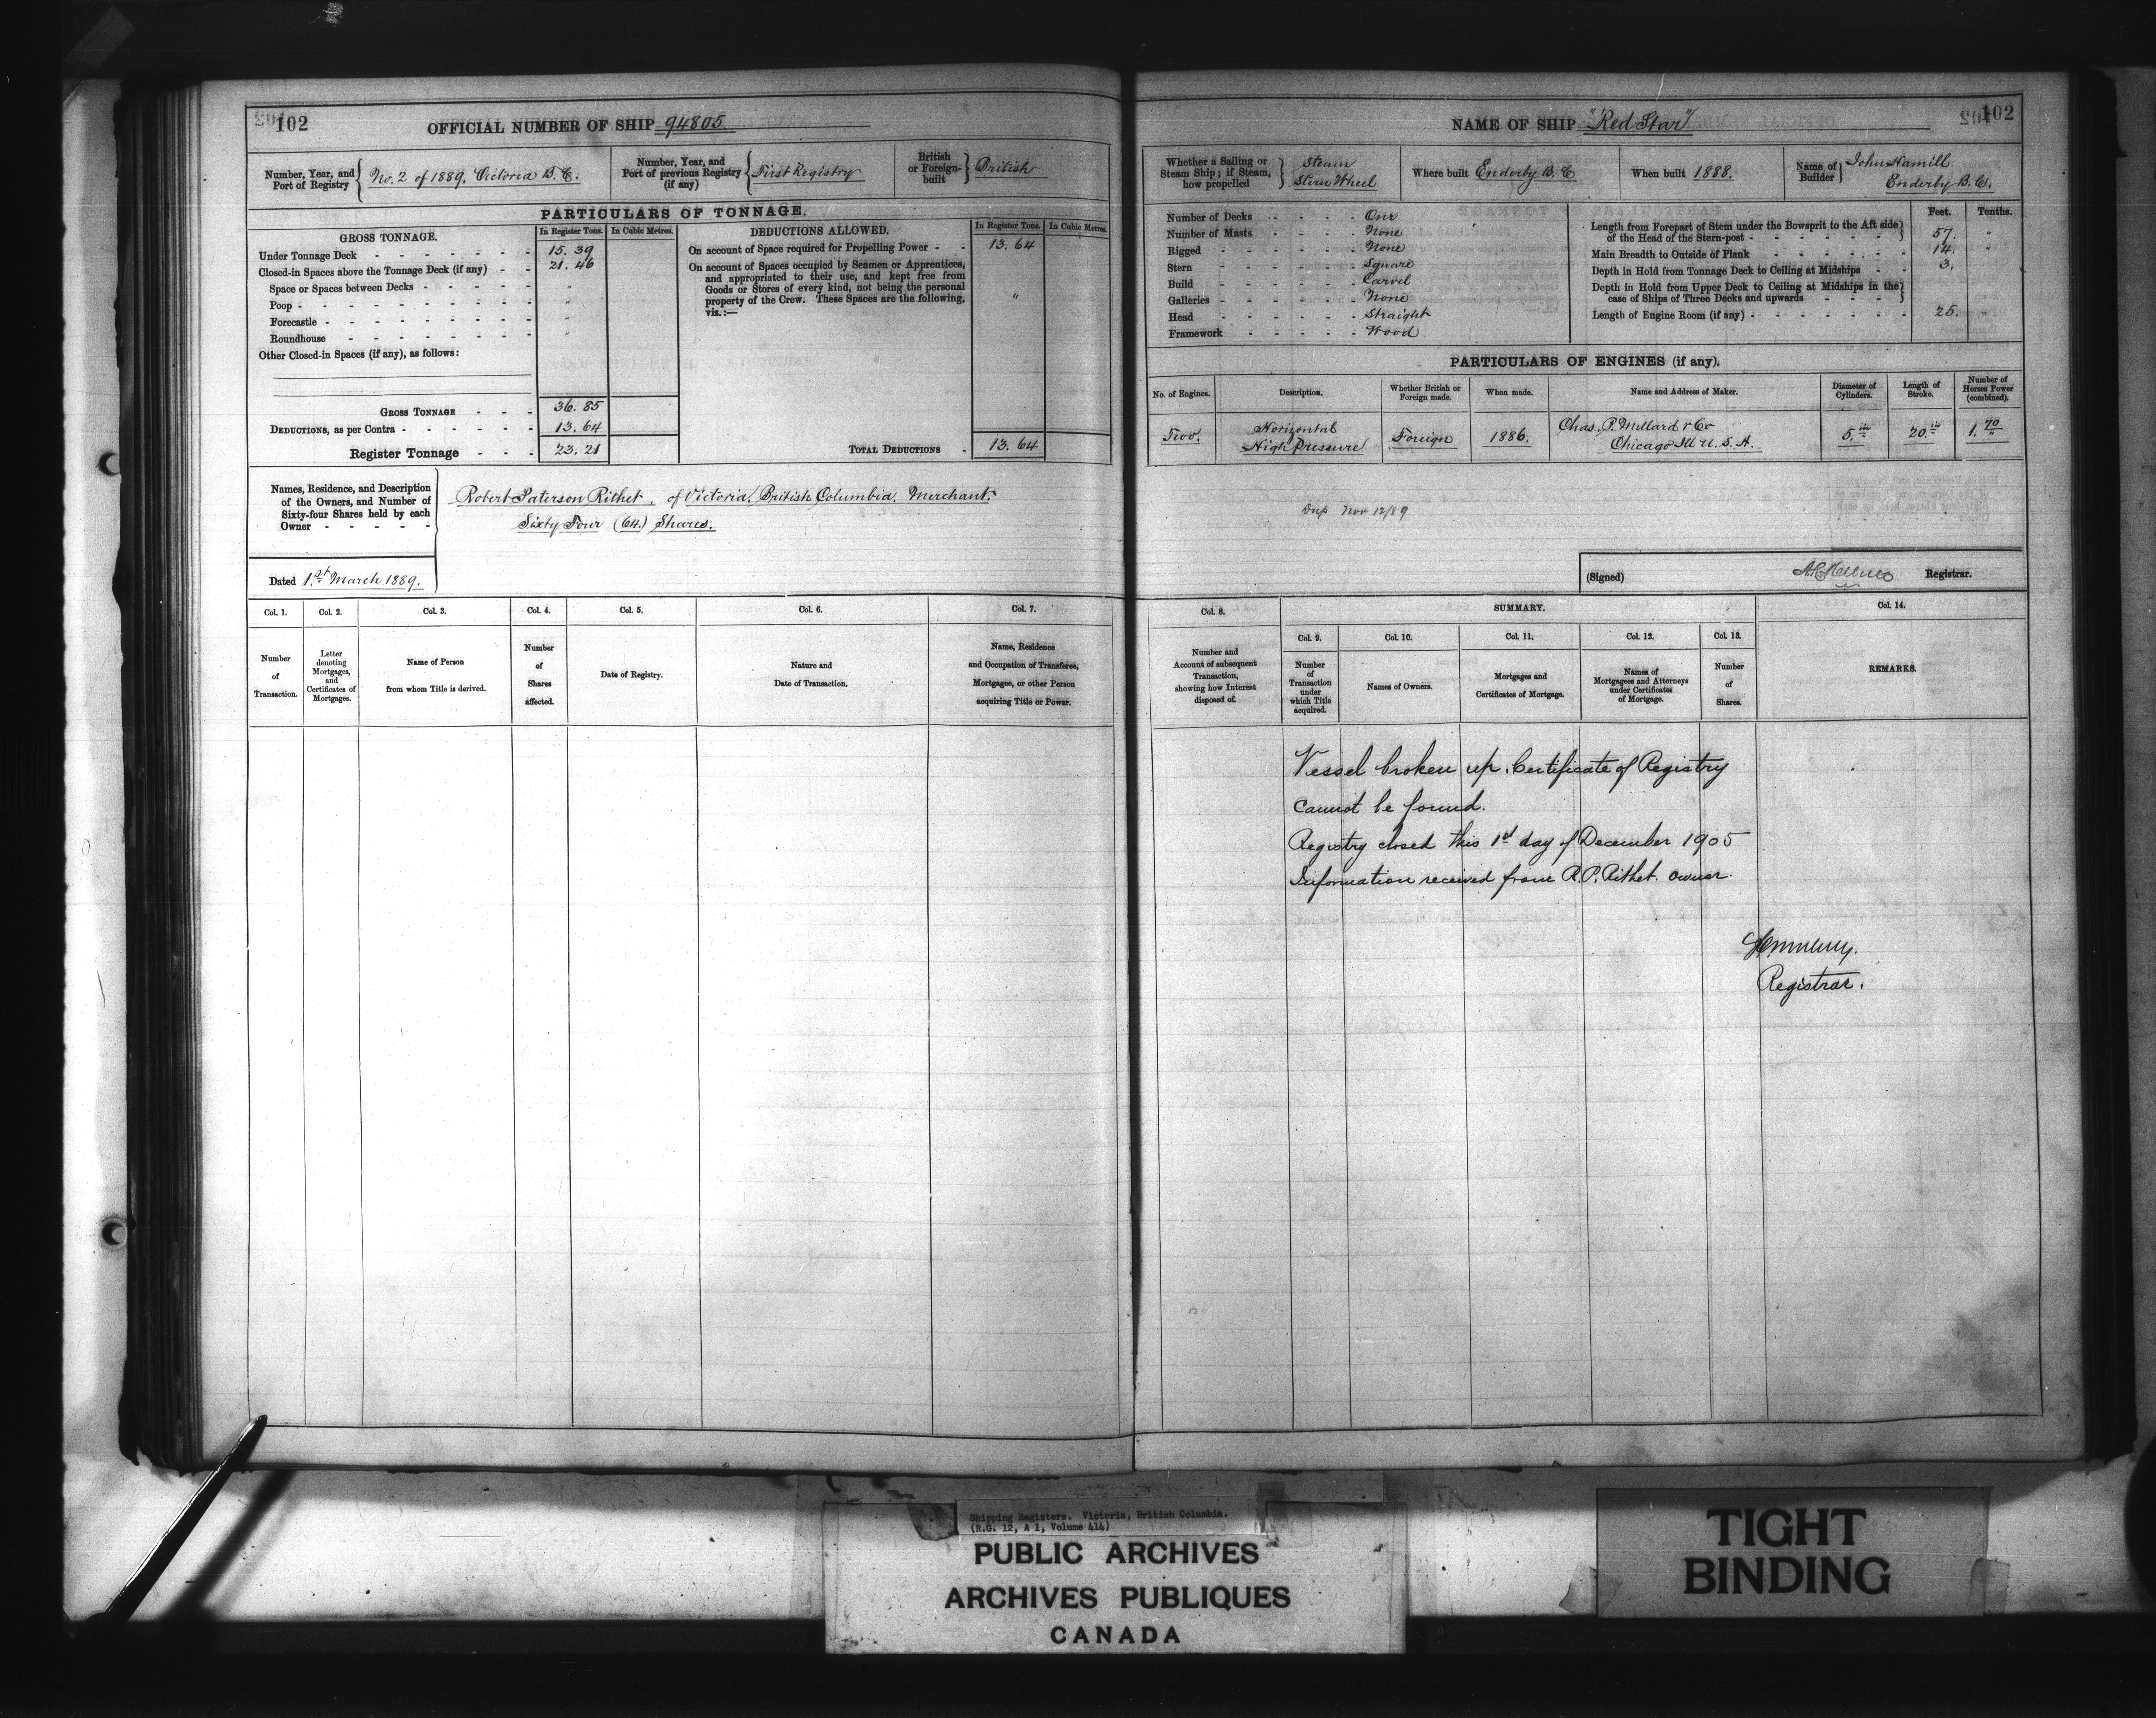 102
OFFICIAL NUMBER OF SHIP 94805
Number, Year, and Port of Registry No. 2 of 1889. Victoria B.C.
Number, Year, and Port of previous Registry (if any) First Registry
British or Foreign-built British
PARTICULARS OF TONNAGE.
GROSS TONNAGE. In Register Tons. In Cubic Metres.
DEDUCTIONS ALLOWED. In Register Tons. In Cubic Metres.
Under Tonnage Deck - - - - - - - 15.39
Closed-in Spaces above the Tonnage Deck (if any) - - 21.46
Space or Spaces between Decks - - - - - "
Poop - - - - - - - - - "
Forecastle - - - - - - - - "
Roundhouse - - - - - - -
Other Closed-in Spaces (if any), as follows:
GROSS TONNAGE - - - 36.85
DEDUCTIONS, as per Contra - - - - - - 13.64
Register Tonnage - - - 23.21
On account of Space required for Propelling Power - - 13.64
On account of Spaces occupied by Seamen or Apprentices,
and appropriated to their use, and kept free from
Goods or Stores of every kind, not being the personal "
property of the Crew. These Spaces are the following,
viz.:—
TOTAL DEDUCTIONS - 13.64
Names, Residence, and Description
of the Owners, and Number of
Sixty-four Shares held by each
Owner - - - - -
Robert Paterson Rithet, of Victoria, British Columbia, Merchant.
Sixty Four (64.) Shares.
Dated 1st March 1889.
Col. 1. Col. 2. Col. 3. Col. 4. Col. 5. Col. 6. Col. 7.
Number of Transaction.
Letter denoting Mortgages, and Certificates of Mortgages.
Name of Person from whom Title is derived.
Number of Shares affected.
Date of Registry.
Nature and Date of Transaction.
Name, Residence and Occupation of Transferee, Mortgagee, or other Person acquiring Title or Power.
102
NAME OF SHIP "Red Star"
Whether a Sailing or Steam Ship; if Steam, how propelled Steam Stern Wheel
Where built Enderby B.C
When built 1888.
Name of Builder John Hamill Enderby B.C.
Number of Decks - - - - One
Number of Masts - - - - None
Rigged - - - - - None
Stern - - - - - Square
Build - - - - - Carvel
Galleries - - - - - None
Head - - - - - Straight
Framework - - - - Wood
Feet. Tenths.
Length from Forepart of Stem under the Bowsprit to the Aft side
of the Head of the Stern-post - - - - - - 57. "
Main Breadth to Outside of Plank - - - - - - 14. "
Depth in Hold from Tonnage Deck to Ceiling at Midships - - 3.
Depth in Hold from Upper Deck to Ceiling at Midships in the
case of Ships of Three Decks and upwards - - - -
Length of Engine Room (if any) - - - - - - 25. "
PARTICULARS OF ENGINES (if any).
No. of Engines. Description. Whether British or Foreign made. When made. Name and Address of Maker. Diameter of Cylinders. Length of Stroke. Number of Horses Power (combined).
Two. Horizontal High Pressure Foreign 1886. Chas. P. Willard & Co Chicago Ill U.S.A. 5.in 20.in 1.70
Dup Nov 12/89
(Signed) Registrar.
Col. 8. SUMMARY. Col. 14.
Col. 9. Col. 10. Col. 11. Col. 12. Col. 13.
Number and Account of subsequent Transaction, showing how Interest disposed of.
Number of Transaction under which Title acquired.
Names of Owners.
Mortgages and Certificates of Mortgage.
Names of Mortgagees and Attorneys under Certificates of Mortgage.
Number of Shares.
REMARKS.
Vessel broken up. Certificate of Registry
cannot be found.
Registry closed this 1st day of December 1905
Information received from R.P. Rithet. owner.
Registrar.
Shipping Registers. Victoria, British Columbia.
(R.G. 12, A 1, Volume 414)
PUBLIC ARCHIVES
ARCHIVES PUBLIQUES
CANADA
TIGHT
BINDING